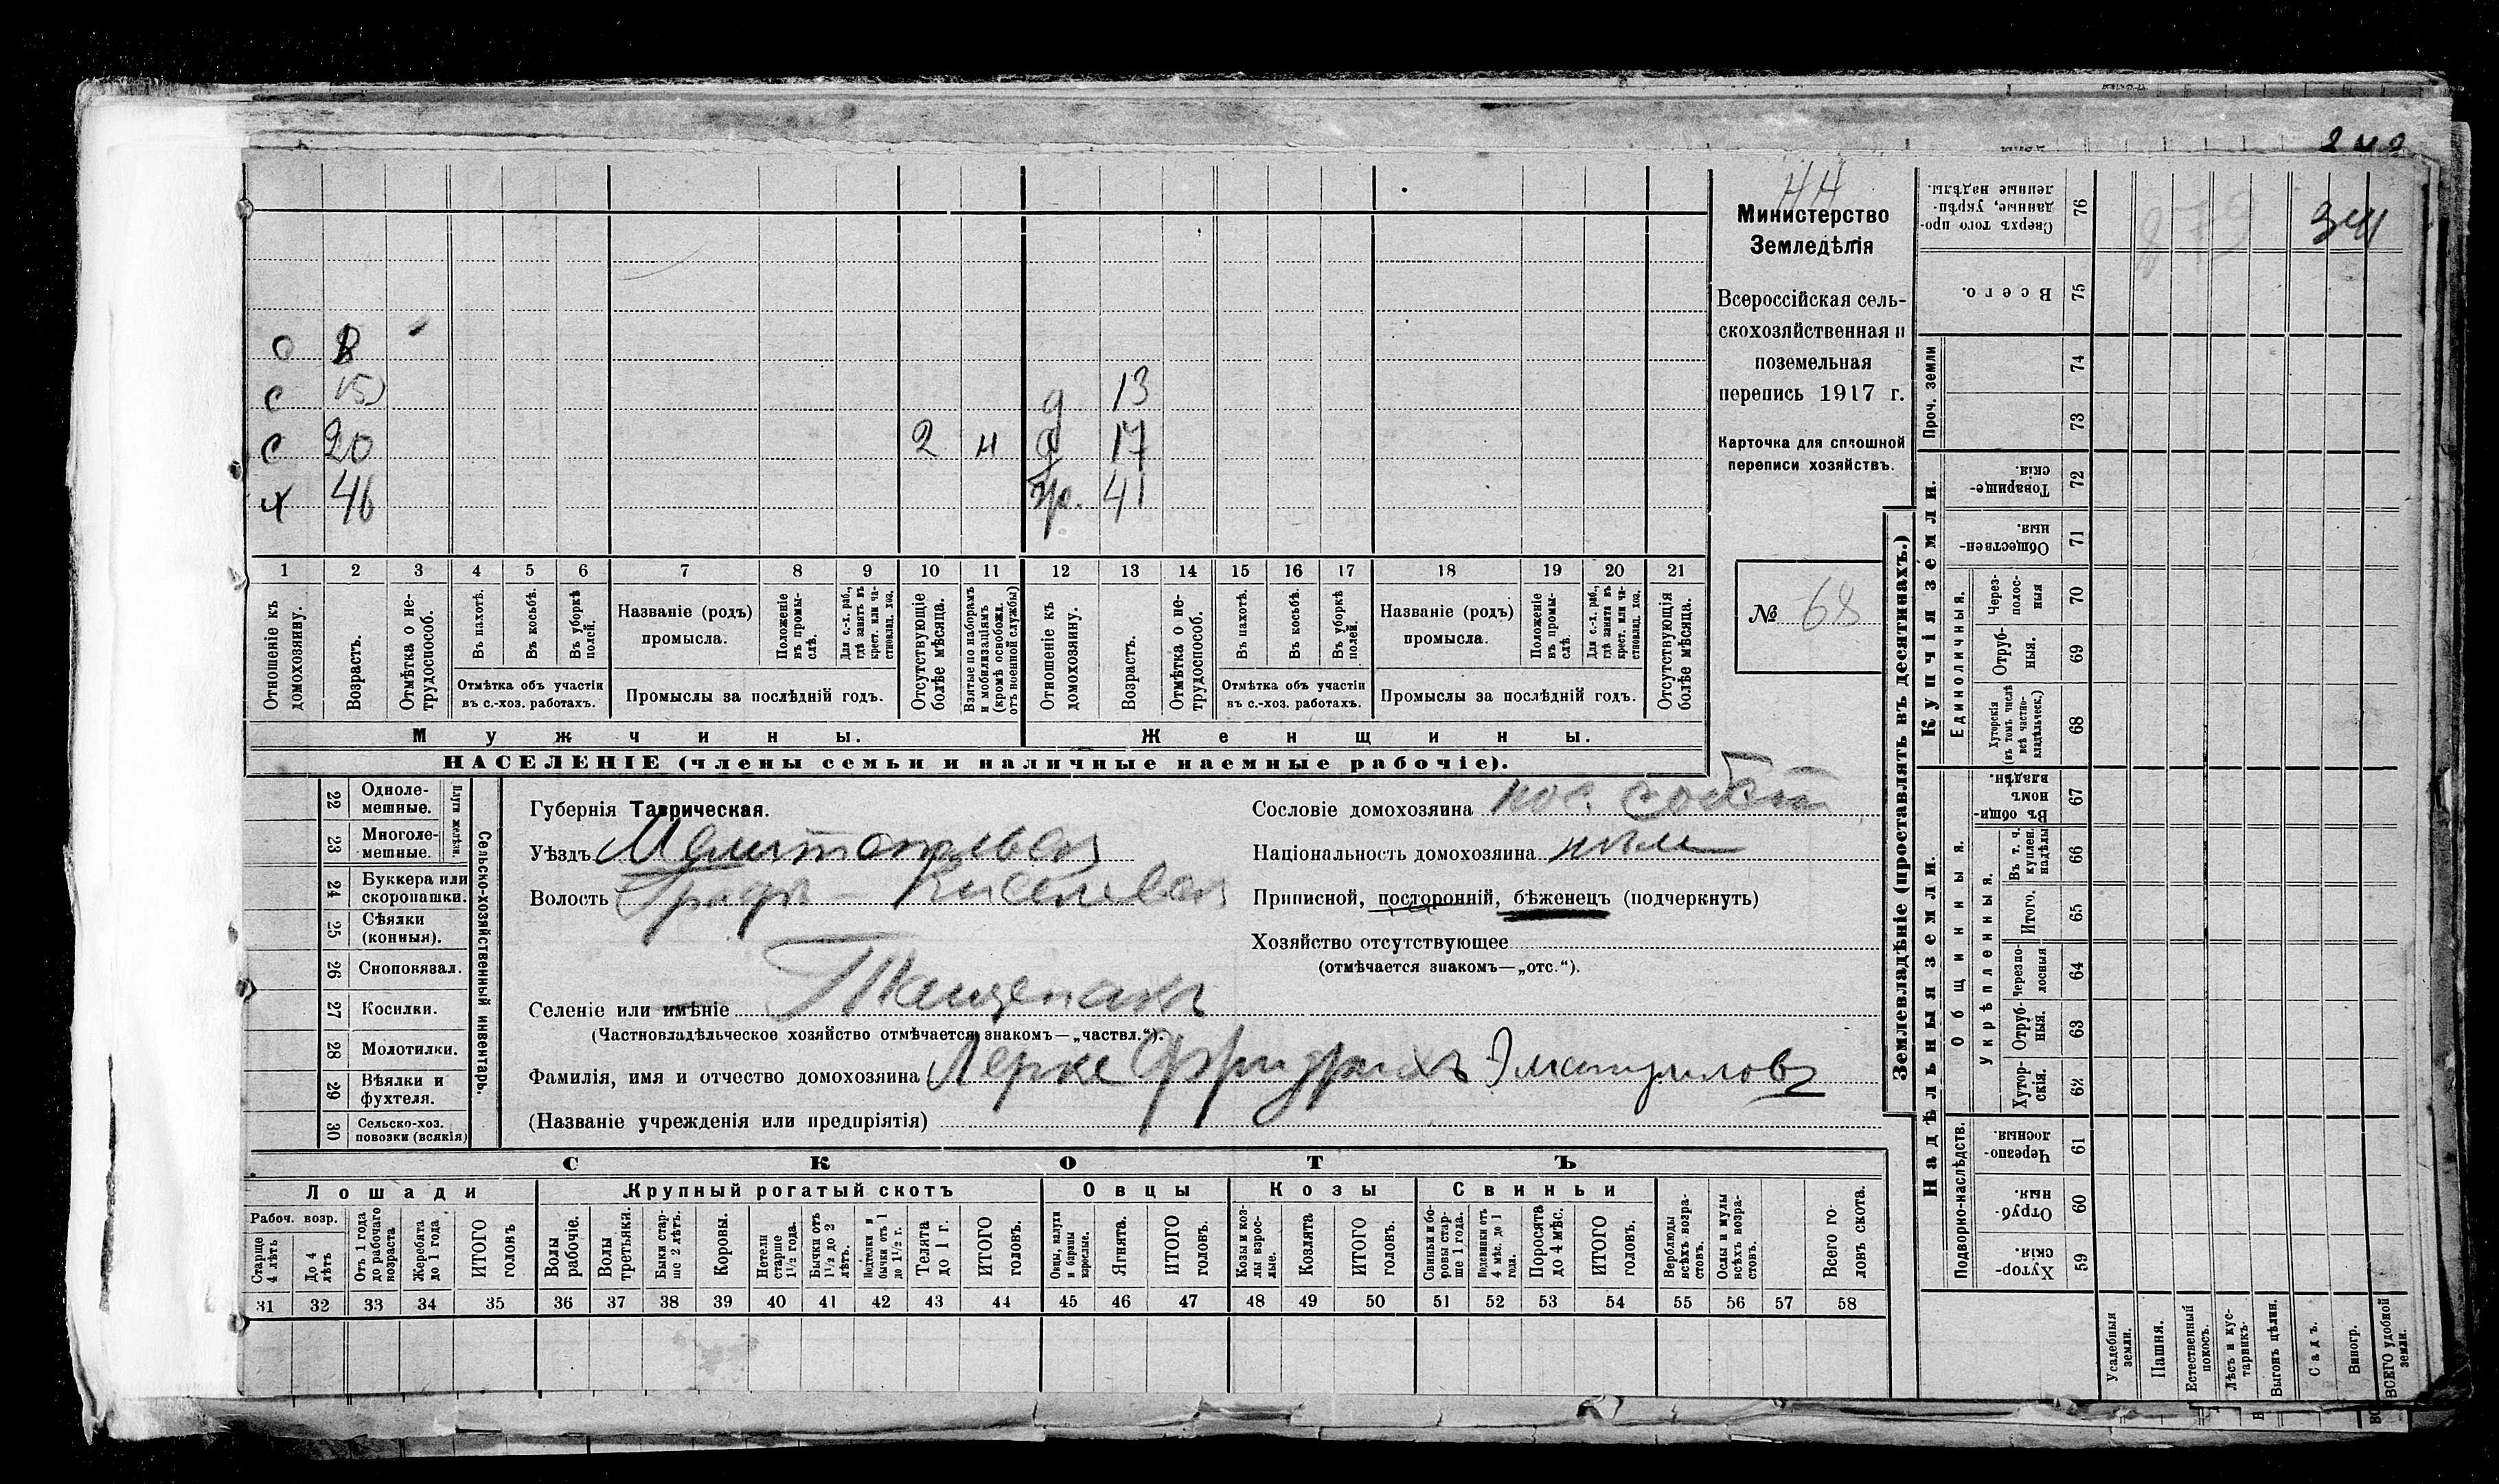 242
44
Министерство
Земледѣлія
Всероссійская сель-
скохозяйственная и
поземельная
перепись 1917 г.
Карточка для сплошной
переписи хозяйствъ.
№ 68
о 8
с 15 д 13
с 20 2 н д 17
х 46 жр. 41
1 2 3 4 5 6 7 8 9 10 11 12 13 14 15 16 17 18 19 20 21
Отношеніе къ домохозяину.
Возрастъ.
Отмѣтка о не-трудоспособ.
Въ пахотѣ.
Въ косьбѣ.
Въ уборкѣ полей.
Отмѣтка объ участіи
въ с.-хоз. работахъ.
Названіе (родъ)
промысла.
Положеніе въ промы-слѣ.
Для с.-х. раб., гдѣ занятъ въ крест. или ча-стновлад. хоз.
Промыслы за послѣдній годъ.
Отсутствующіе болѣе мѣсяца.
Взятые по наборамъ и мобилизаціямъ (кромѣ освобожд. отъ военной службы)
Отношеніе къ домохозяину.
Возрастъ.
Отмѣтка о не-трудоспособ.
Въ пахотѣ.
Въ косьбѣ.
Въ уборкѣ полей.
Отмѣтка объ участіи
въ с.-хоз. работахъ.
Названіе (родъ)
промысла.
Положеніе въ промы-слѣ.
Для с.-х. раб., гдѣ занята въ крест. или ча-стновлад. хоз.
Промыслы за послѣдній годъ.
Отсутствующія болѣе мѣсяца.
Мужчины. Женщины.
НАСЕЛЕНІЕ (члены семьи и наличные наемные рабочіе).
Сельско-хозяйственный инвентарь.
Плуги желѣзн.
22 Одноле-мешные.
23 Многоле-мешные.
24 Буккера или скоропашки.
25 Сѣялки (конныя).
26 Сноповязал.
27 Косилки.
28 Молотилки.
29 Вѣялки и фухтеля.
30 Сельско-хоз. повозки (всякія)
Губернія Таврическая.
Уѣздъ Мелитопольск
Волость Графъ-Киселевск
Селеніе или имѣніе Тащенакъ
(Частновладѣльческое хозяйство отмѣчается знакомъ—„частвл.“).
Фамилія, имя и отчество домохозяина Лерке Фридрихъ Эмануилов
(Названіе учрежденія или предпріятія)
Сословіе домохозяина пос. собст
Національность домохозяина нѣм
Приписной, посторонній, бѣженецъ (подчеркнуть)
Хозяйство отсутствующее
(отмѣчается знакомъ—„отс.“).
СКОТЪ
Лошади Крупный рогатый скотъ Овцы Козы Свиньи
Рабоч. возр.
Старше 4 лѣтъ
До 4 лѣтъ
Отъ 1 года до рабочаго возраста
Жеребята до 1 года
ИТОГО головъ
Волы рабочіе.
Волы третьяки.
Быки стар-ше 2 лѣтъ.
Коровы.
Нетели старше 1½ года.
Бычки отъ 1½ до 2 лѣтъ.
Подтелки и бычки отъ 1 до 1½ г.
Телята до 1 г.
ИТОГО головъ.
Овцы, валухи и бараны взрослые.
Ягнята.
ИТОГО головъ.
Козы и коз-лы взрос-лые.
Козлята
ИТОГО головъ.
Свиньи и бо-ровы стар-ше 1 года.
Подсвинки отъ 4 мѣс. до 1 года.
Поросята до 4 мѣс.
ИТОГО головъ.
Верблюды всѣхъ возра-стовъ.
Ослы и мулы всѣхъ возра-стовъ.
Всего го-ловъ скота.
31 32 33 34 35 36 37 38 39 40 41 42 43 44 45 46 47 48 49 50 51 52 53 54 55 56 57 58
Землевладѣніе (проставлять въ десятинахъ.)
Купчія земли.
Надѣльныя земли.
Сверхъ того про-данные, укрѣп-ленные надѣлы. 76
Всего. 75
Проч. земли
74
73
Товарище-скія. 72
Обществен-ныя. 71
Единоличныя.
Через-полос-ныя 70
Отруб-ныя. 69
Хуторскія (въ томъ числѣ всѣ частно-владѣльческ.) 68
Общинныя.
Въ общин-номъ владѣн. 67
Укрѣпленныя.
Въ т. ч. куплен. надѣлы 66
Итого. 65
Черезпо-лосныя 64
Отруб-ныя. 63
Хутор-скія. 62
Подворно-наслѣдств.
Черезпо-лосныя. 61
Отруб-ныя. 60
Хутор-скія. 59
Усадебныя земли.
Пашня.
Естественный покосъ.
Лѣсъ и кус-тарникъ.
Выгонъ цѣлин.
Садъ.
Виногр.
ВСЕГО удобной земли.
879